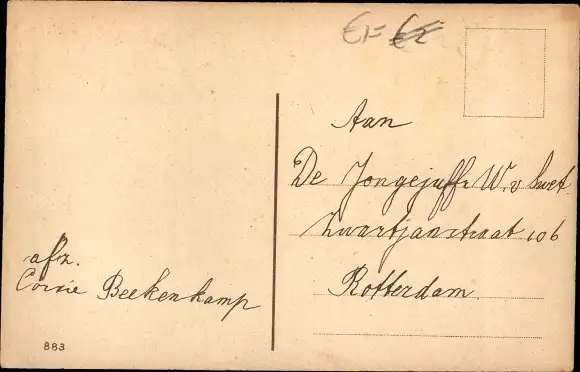 €1= €2
Aan
De Jongejuffr W. v Swet.
Zwartjanstraat 106
Rotterdam.
afz.
Corrie Beekenkamp
883